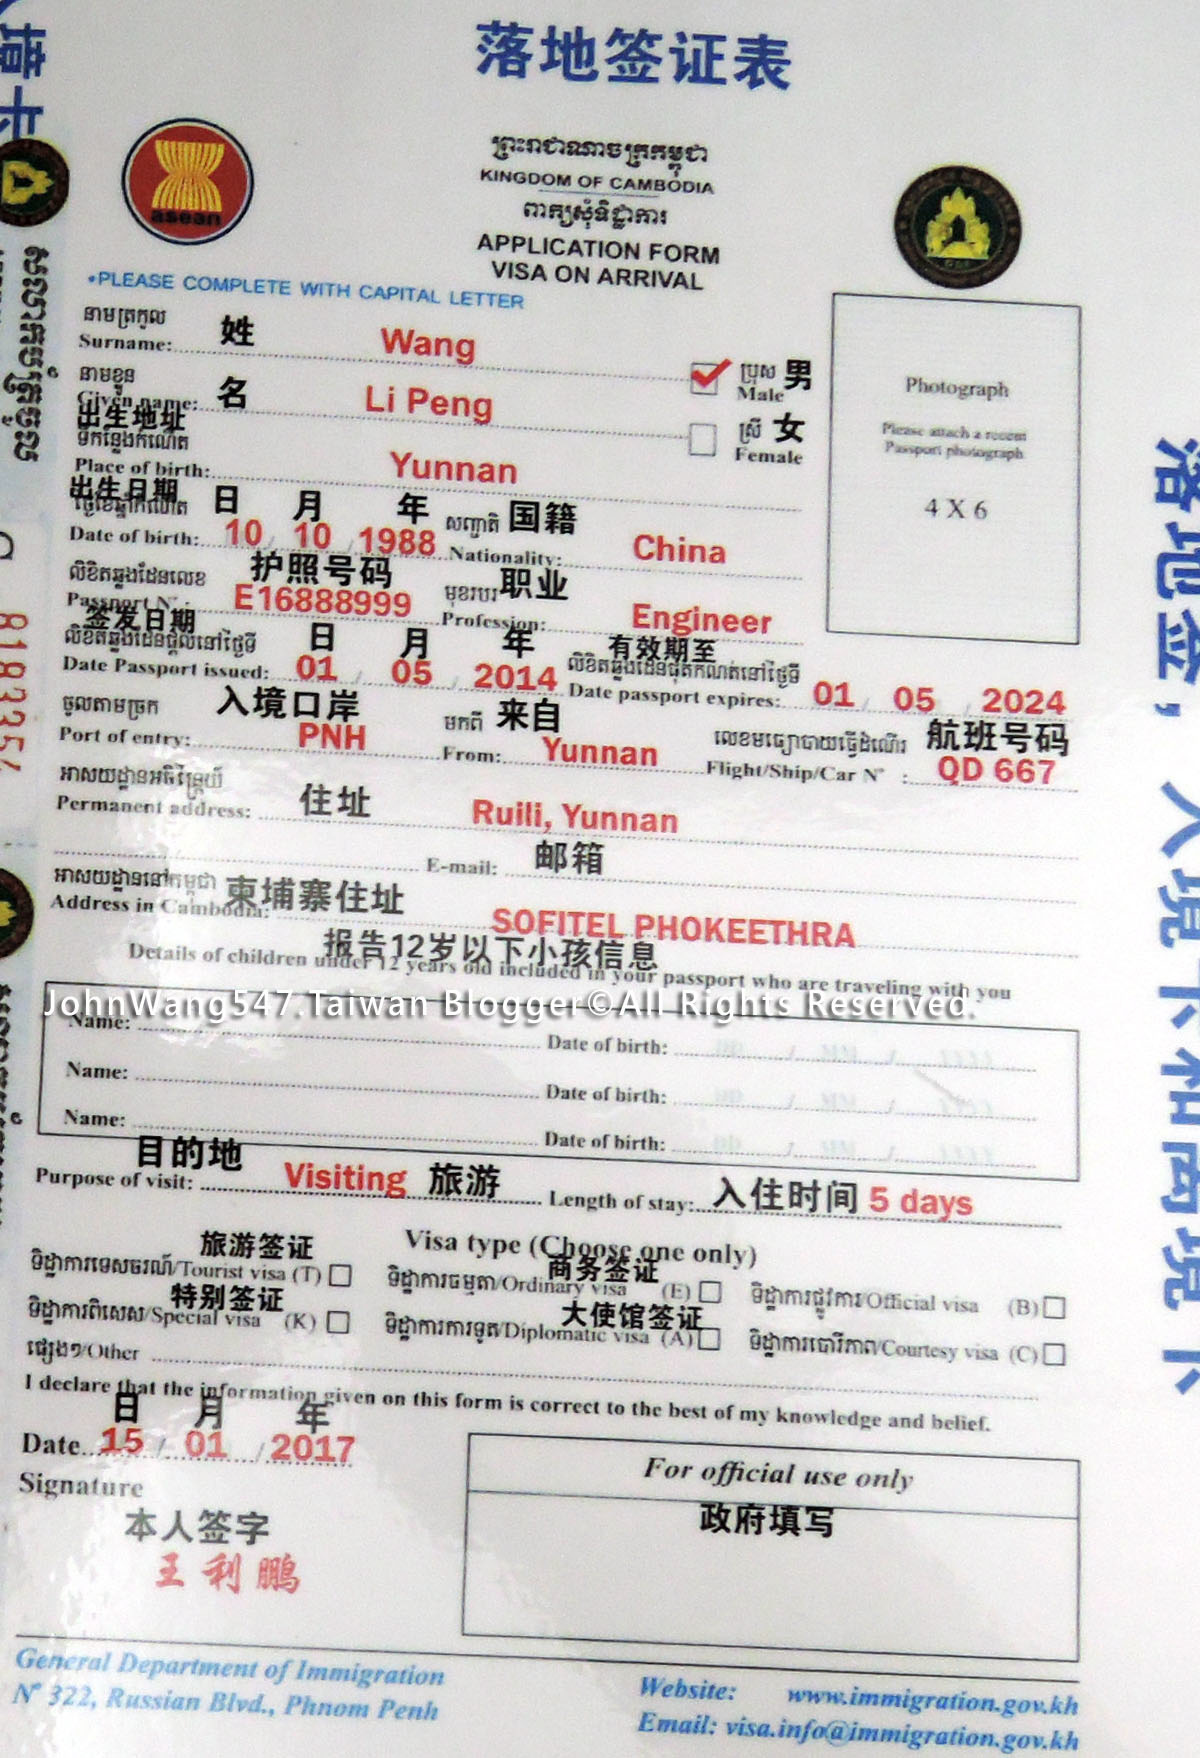 落地签证表
ព្រះរាជាណាចក្រកម្ពុជា
KINGDOM OF CAMBODIA
ពាក្យសុំទិដ្ឋាការ
APPLICATION FORM
VISA ON ARRIVAL
asean
*PLEASE COMPLETE WITH CAPITAL LETTER
នាមត្រកូល
Surname: 姓 Wang
ប្រុស 男
Male
នាមខ្លួន
Given name: 名 Li Peng
ស្រី 女
Female
出生地址
ទីកន្លែងកំណើត
Place of birth: Yunnan
Photograph
Please attach a recent
Passport photograph
4 X 6
出生日期 日 月 年 សញ្ជាតិ 国籍
ថ្ងៃខែឆ្នាំកំណើត
Date of birth: 10 / 10 / 1988 Nationality: China
លិខិតឆ្លងដែនលេខ 护照号码 មុខរបរ 职业
Passport N°: E16888999 Profession: Engineer
签发日期 日 月 年 有效期至
លិខិតឆ្លងដែនផ្តល់នៅថ្ងៃទី លិខិតឆ្លងដែនផុតកំណត់នៅថ្ងៃទី
Date Passport issued: 01 / 05 / 2014 Date passport expires: 01 / 05 / 2024
ចូលតាមច្រក 入境口岸 មកពី 来自 លេខមធ្យោបាយធ្វើដំណើរ 航班号码
Port of entry: PNH From: Yunnan Flight/Ship/Car N° : QD 667
អាសយដ្ឋានអចិន្ត្រៃយ៍
Permanent address: 住址 Ruili, Yunnan
E-mail: 邮箱
អាសយដ្ឋាននៅកម្ពុជា 柬埔寨住址
Address in Cambodia: SOFITEL PHOKEETHRA
报告12岁以下小孩信息
Details of children under 12 years old included in your passport who are traveling with you
JohnWang547.Taiwan Blogger©All Rights Reserved.
Name: Date of birth:
Name: Date of birth:
Name: Date of birth:
目的地
Purpose of visit: Visiting 旅游 Length of stay: 入住时间 5 days
Visa type (Choose one only)
旅游签证 商务签证
ទិដ្ឋាការទេសចរណ៍/Tourist visa (T) ទិដ្ឋាការធម្មតា/Ordinary visa (E) ទិដ្ឋាការផ្លូវការ/Official visa (B)
特别签证 大使馆签证
ទិដ្ឋាការពិសេស/Special visa (K) ទិដ្ឋាការការទូត/Diplomatic visa (A) ទិដ្ឋាការបារីភាព/Courtesy visa (C)
ផ្សេងៗ/Other
I declare that the information given on this form is correct to the best of my knowledge and belief.
日 月 年
Date 15 / 01 / 2017
Signature
本人签字
王利鹏
For official use only
政府填写
General Department of Immigration
N° 322, Russian Blvd., Phnom Penh
Website: www.immigration.gov.kh
Email: visa.info@immigration.gov.kh
落地签，入境卡和离境卡
境卡